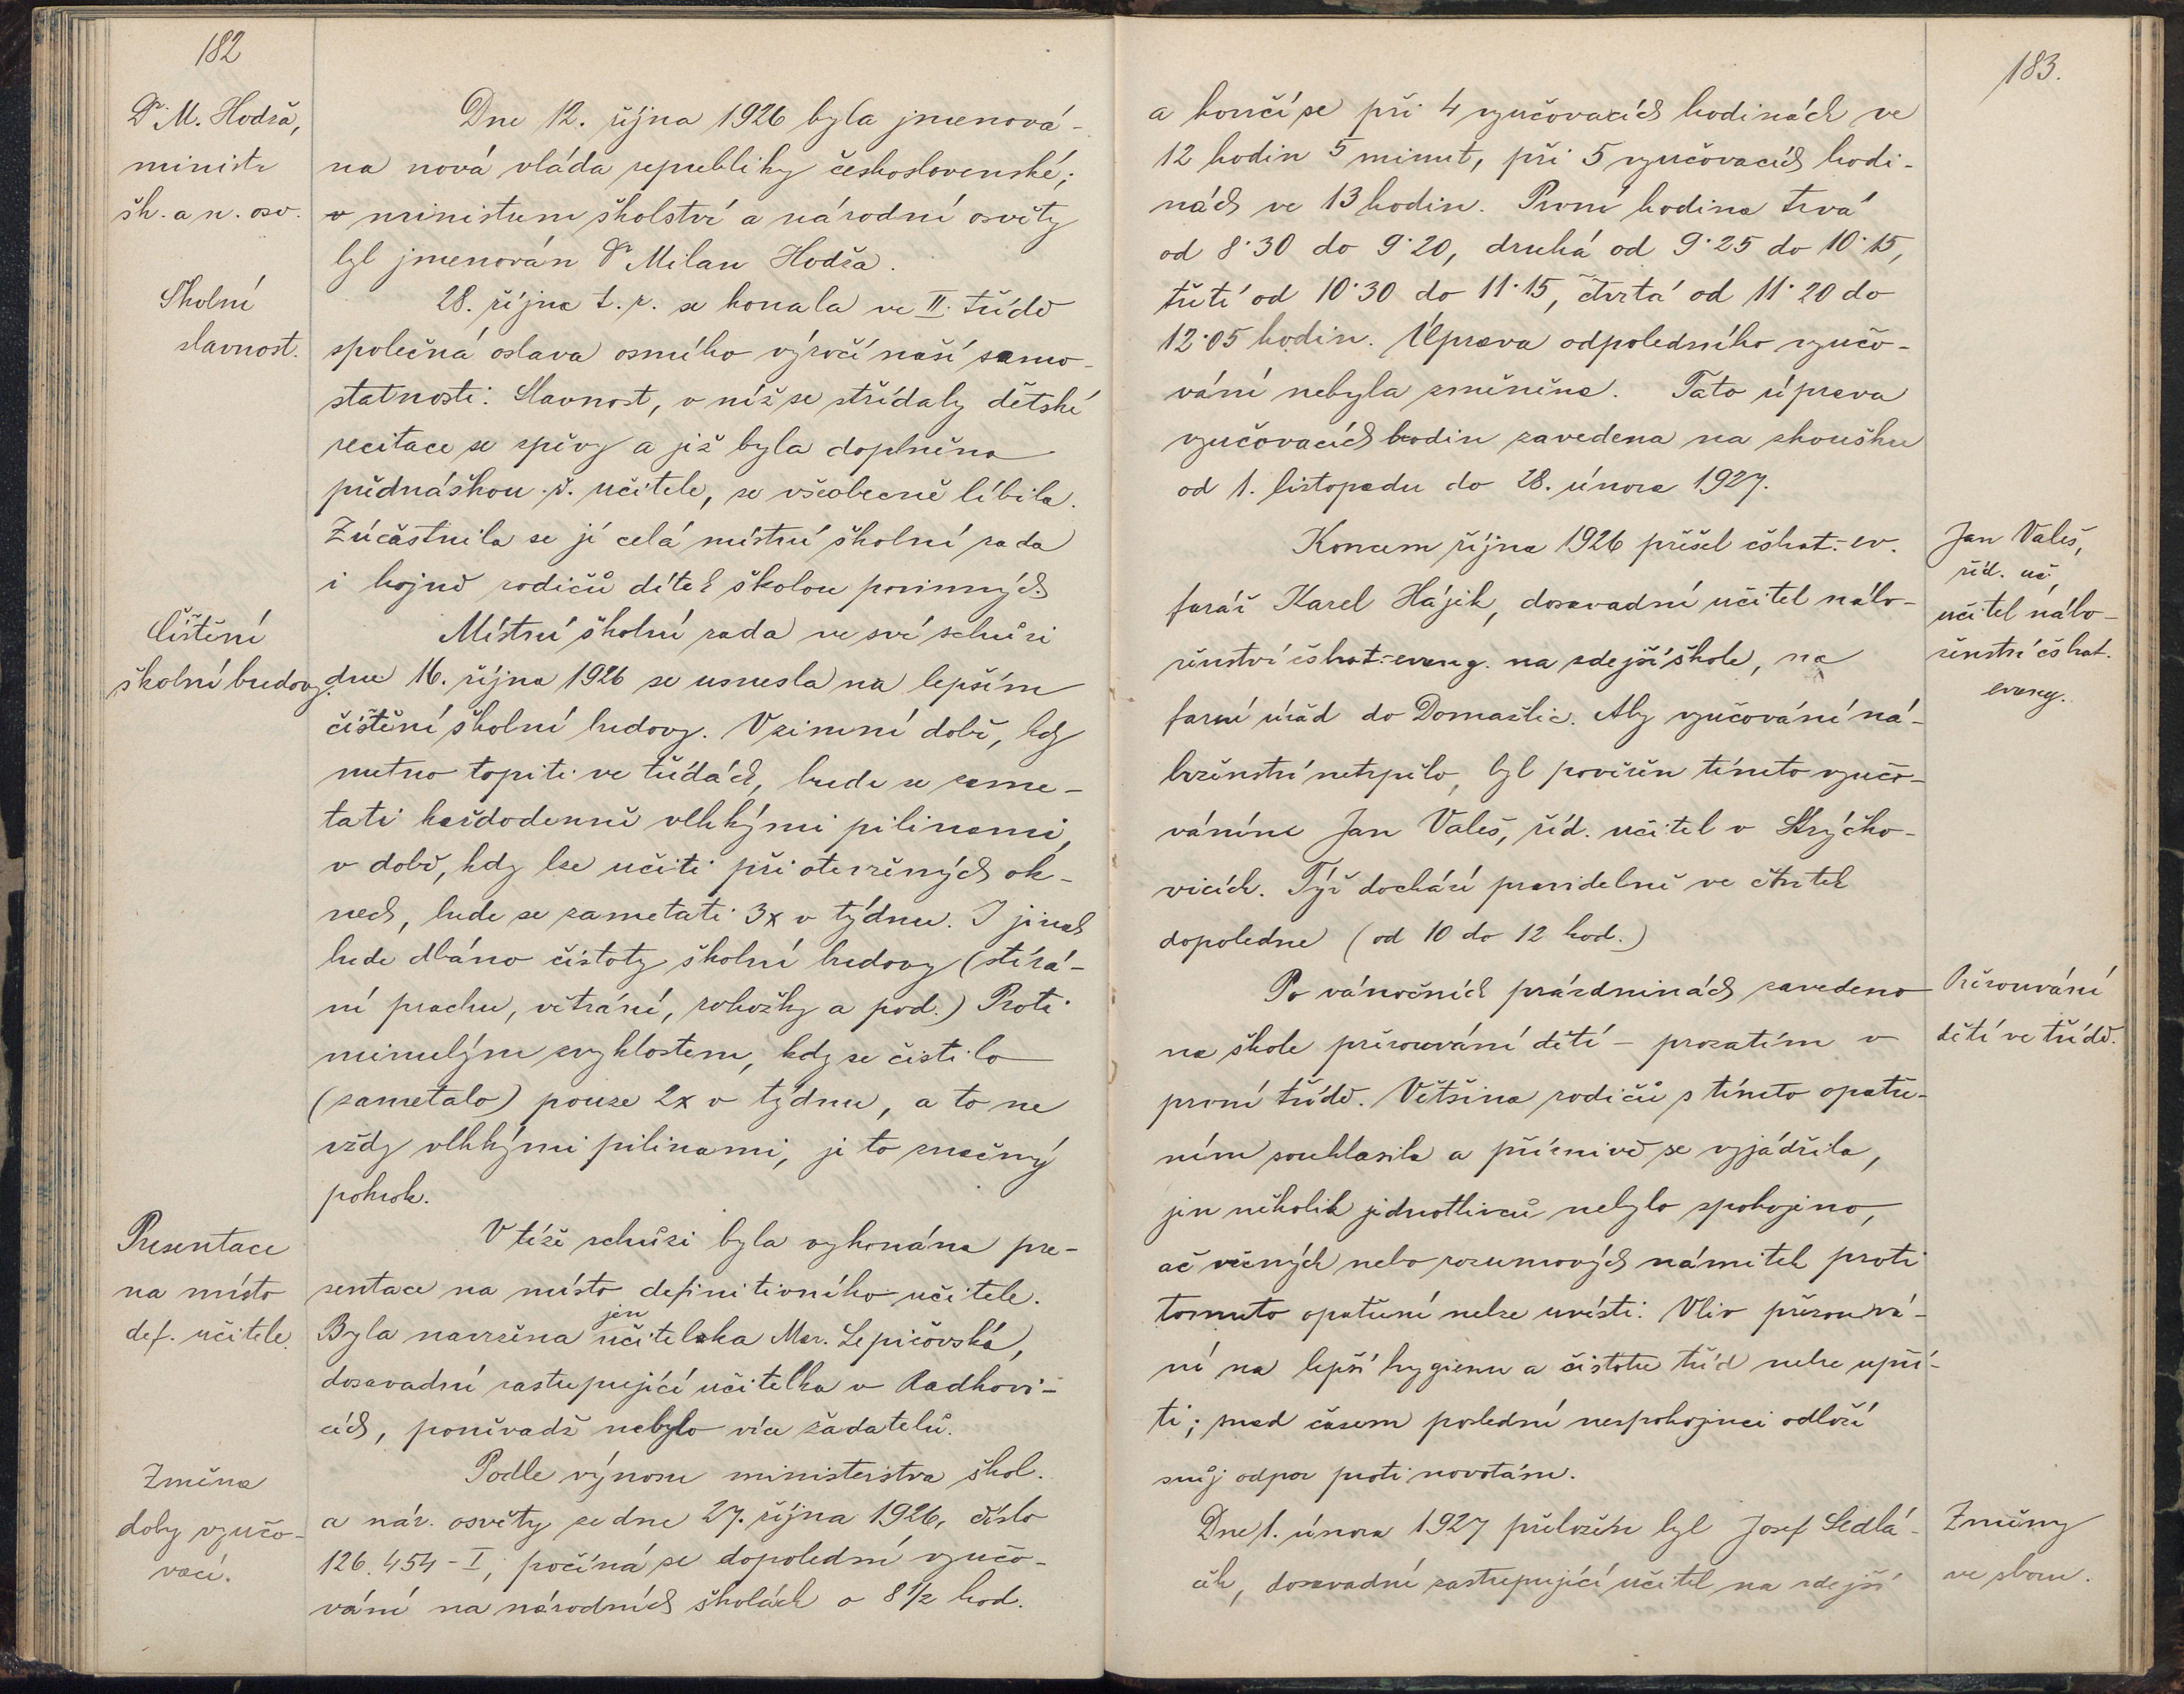 182
Dr. M. Hodža,
ministr
šk. a n. osv.
Dne 12. října 1926 byla jmenová-
na nová vláda republiky československé;
v ministrem školství a národní osvěty
byl jmenován Dr. Milan Hodža.
Školní
slavnost.
28. října t. r. se konala ve II. třídě
společná oslava osmého výročí naší samo-
statnosti. Slavnost, v níž se střídaly dětské
recitace se zpěvy a jež byla doplněna
přednáškou ř. učitele, se všeobecně líbila.
Zúčastnila se jí celá místní školní rada
i hojně rodičů dítek školou povinných
Čištění
školní budovy.
Místní školní rada ve své schůzi
dne 16. října 1926 se usnesla na lepším
čištění školní budovy. V zimní době, kdy
nutno topiti ve třídách, bude se zame-
tati každodenně vlhkými pilinami,
v době, kdy lze učiti při otevřených ok-
nech, bude se zametati 3x v týdnu. I jinak
bude dbáno čistoty školní budovy (stírá-
ní prachu, větrání, rohožky a pod.) Proti
minulým zvyklostem, kdy se čistilo
(zametalo) pouze 2x v týdnu, a to ne
vždy vlhkými pilinami, je to značný
pokrok.
Presentace
na místo
def. učitele.
V téže schůzi byla vykonána pre-
sentace na místo definitivního učitele.
jen
Byla navržena učitelka Mar. Lepičovská,
dosavadní zastupující učitelka v Radkovi-
cích, poněvadž nebylo více žadatelů.
Změna
doby vyučo-
vací.
Podle výnosu ministerstva škol.
a nár. osvěty ze dne 27. října 1926, číslo
126.454-I, počíná se dopolední vyučo-
vání na národních školách o 8 1/2 hod.
183.
a končí se při 4 vyučovacích hodinách ve
12 hodin 5 minut, při 5 vyučovacích hodi-
nách ve 13 hodin. První hodina trvá
od 8·30 do 9·20, druhá od 9·25 do 10·15,
třetí od 10·30 do 11·15, čtvrtá od 11·20 do
12·05 hodin. Úprava odpoledního vyučo-
vání nebyla změněna. Tato úprava
vyučovacích hodin zavedena na zkoušku
od 1. listopadu do 28. února 1927.
Jan Valeš,
říd. uč.,
učitel nábo-
ženství čskobr.
evang.
Koncem října 1926 přešel čskobr.-ev.
farář Karel Hájek, dosavadní učitel nábo-
ženství čskobr.-evang. na zdejší škole, na
farní úřad do Domažlic. Aby vyučování ná-
boženství netrpělo, byl pověřen tímto vyučo-
váním Jan Valeš, říd. učitel v Strýčko-
vicích. Týž dochází pravidelně ve čtvrtek
dopoledne (od 10 do 12 hod.)
Přezouvání
dětí ve třídě.
Po vánočních prázdninách zavedeno
na škole přezouvání dětí - prozatím v
první třídě. Většina rodičů s tímto opatře-
ním souhlasila a příznivě se vyjádřila,
jen několik jednotlivců nebylo spokojeno,
ač věcných nebo rozumových námitek proti
tomuto opatření nelze uvésti. Vliv přezouvá-
ní na lepší hygienu a čistotu tříd nelze upří-
ti; snad časem poslední nespokojenci odloží
svůj odpor proti novotám.
Změny
ve sboru.
Dne 1. února 1927 přeložen byl Josef Sedlá-
ček, dosavadní zastupující učitel na zdejší